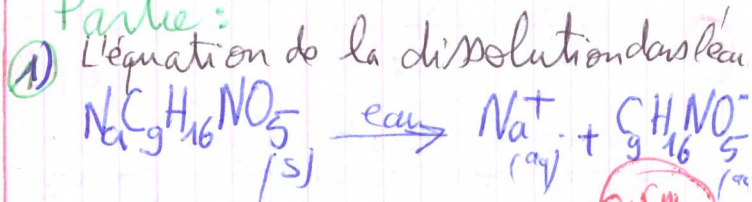 Partie :
1) L'équation de la dissolution dans l'eau
NaC₉H₁₆NO₅(s) eau→ Na⁺(aq) + C₉H₁₆NO₅⁻(aq